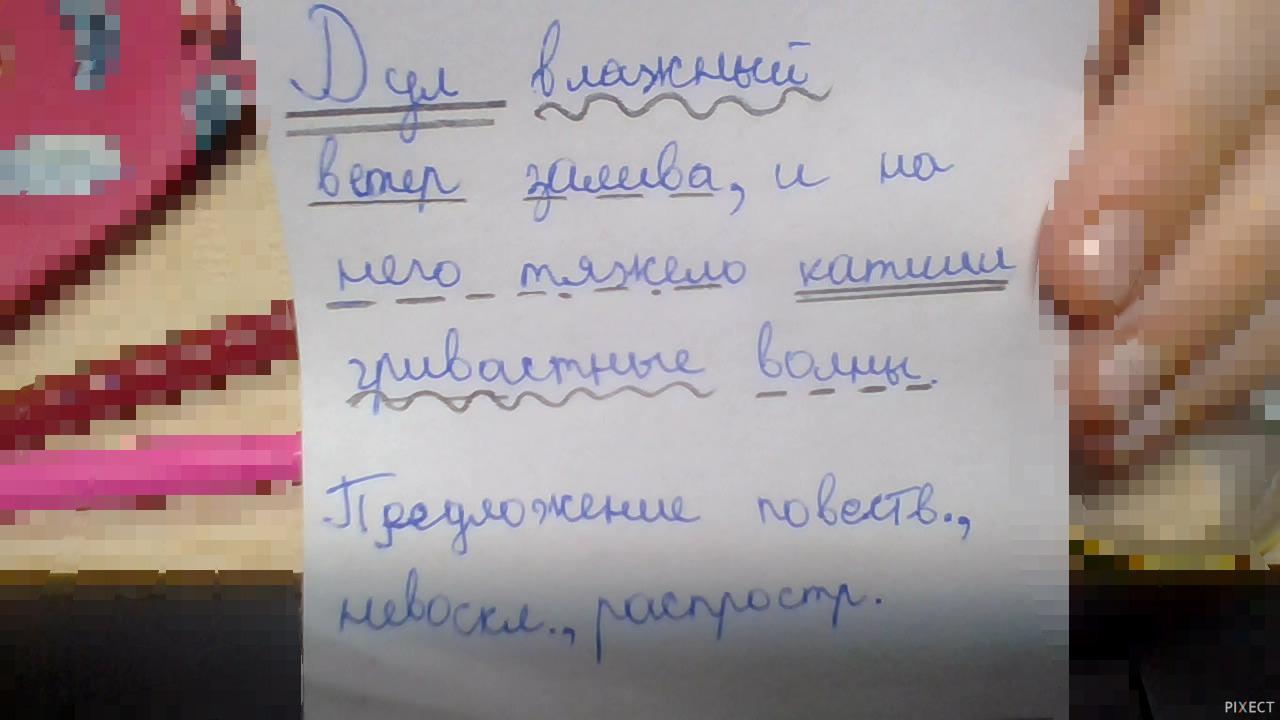 Дул влажный
ветер залива, и на
него тяжело катили
гривастные волны.
Предложение повеств.,
невоскл., распростр.
PIXECT